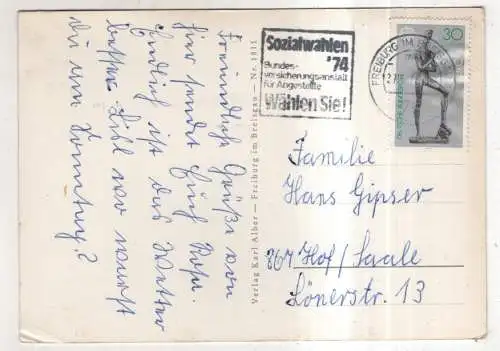 Freundliche Grüße von
hier sendet Euch Rosi.
Endlich ist das Wetter
besser. Lisl wo warst
du am Sonntag?
Verlag Karl Alber — Freiburg im Breisgau — Nr. 1811
Sozialwahlen
'74
Bundes-
versicherungsanstalt
für Angestellte
Wählen Sie!
FREIBURG IM
30
Familie
Hans Gipser
867 Hof/Saale
Lönerstr. 13